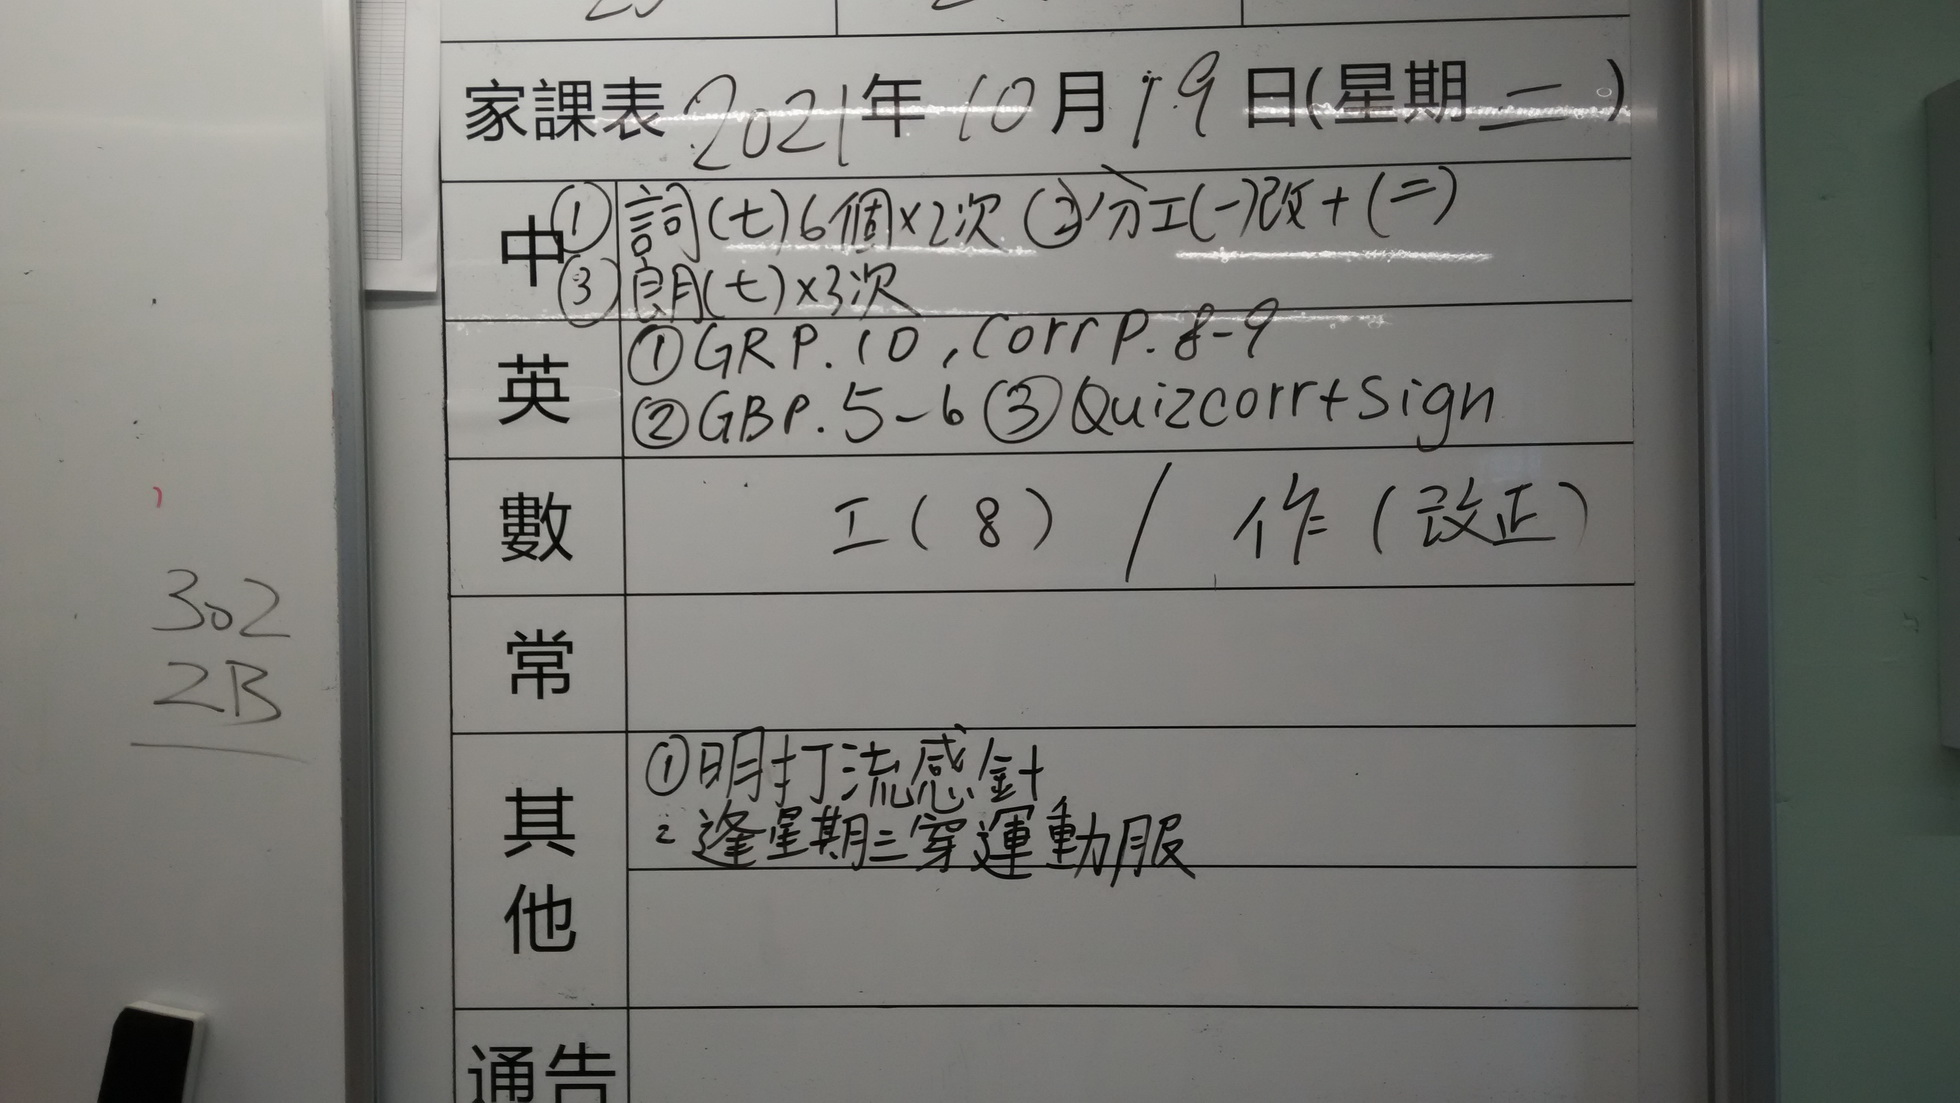 家課表 2021年10月19日(星期二)
中 ①詞(七)6個×2次 ②分工(一)改+(二)
③朗(七)×3次
英 ①GR P.10, Corr P.8-9
②GB P.5-6 ③Quiz corr+Sign
數 工(8) / 作(改正)
常
其他 ①明打流感針
2 逢星期三穿運動服
通告
302
2B